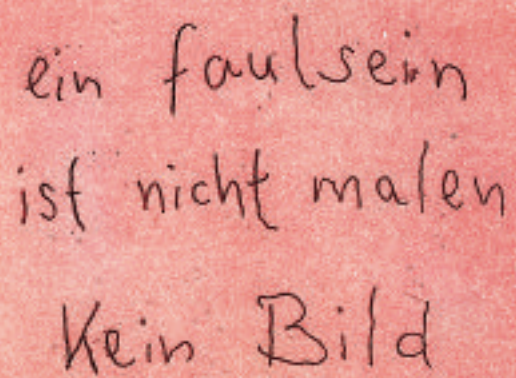 ein faulsein
ist nicht malen
Kein Bild